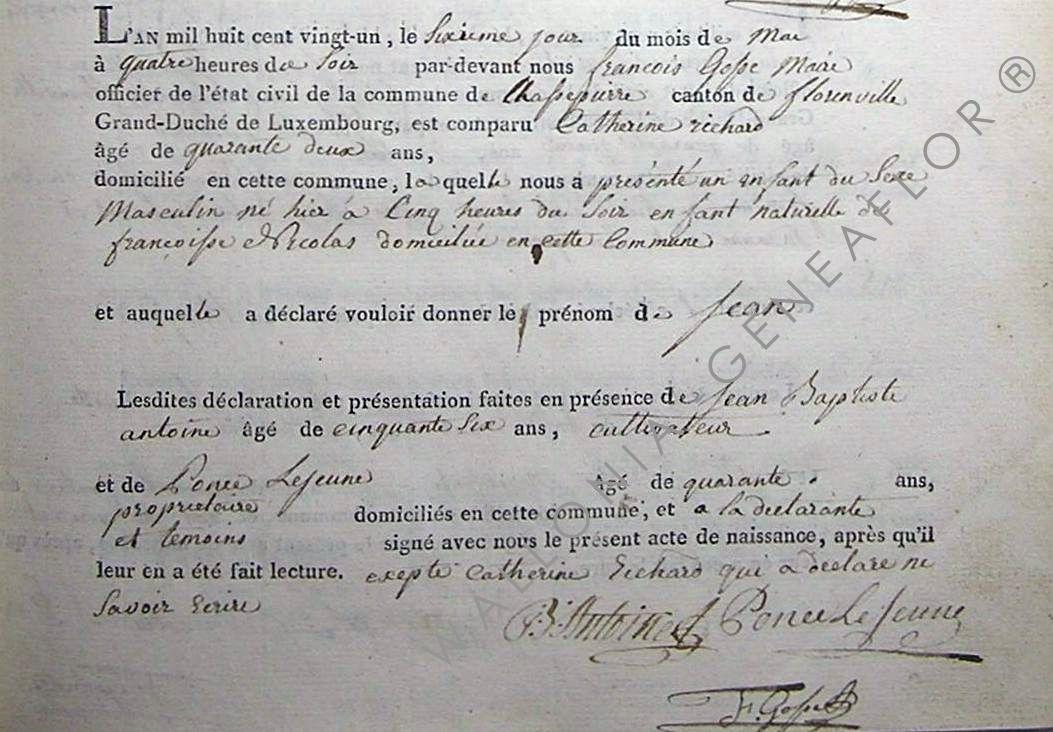 L'AN mil huit cent vingt-un, le Sixieme jour du mois de Mai
à quatre heures de Soir par-devant nous francois Gosse Maire
officier de l'état civil de la commune de Chassepierre canton de florenville
Grand-Duché de Luxembourg, est comparu Catherine richard
âgé de quarante deux ans,
domicilié en cette commune, laquelle nous a présenté un enfant du Sexe
Masculin né hier à Cinq heures du Soir enfant naturelle de
françoisse Nicolas domiciliée en cette Commune
et auquelle a déclaré vouloir donner le prénom de Jean
Lesdites déclaration et présentation faites en présence de Jean Baptiste
antoine âgé de cinquante Six ans, cultivateur
et de Ponce LeJeune âgé de quarante ans,
proprietaire domiciliés en cette commune, et a la declarante
et temoins signé avec nous le présent acte de naissance, après qu'il
leur en a été fait lecture. exepté Catherine Richard qui a declare ne
Savoir Ecrire
B. Antoine Ponce LeJeune
F. Gosse
WALLONIA GENEAFLOR ®